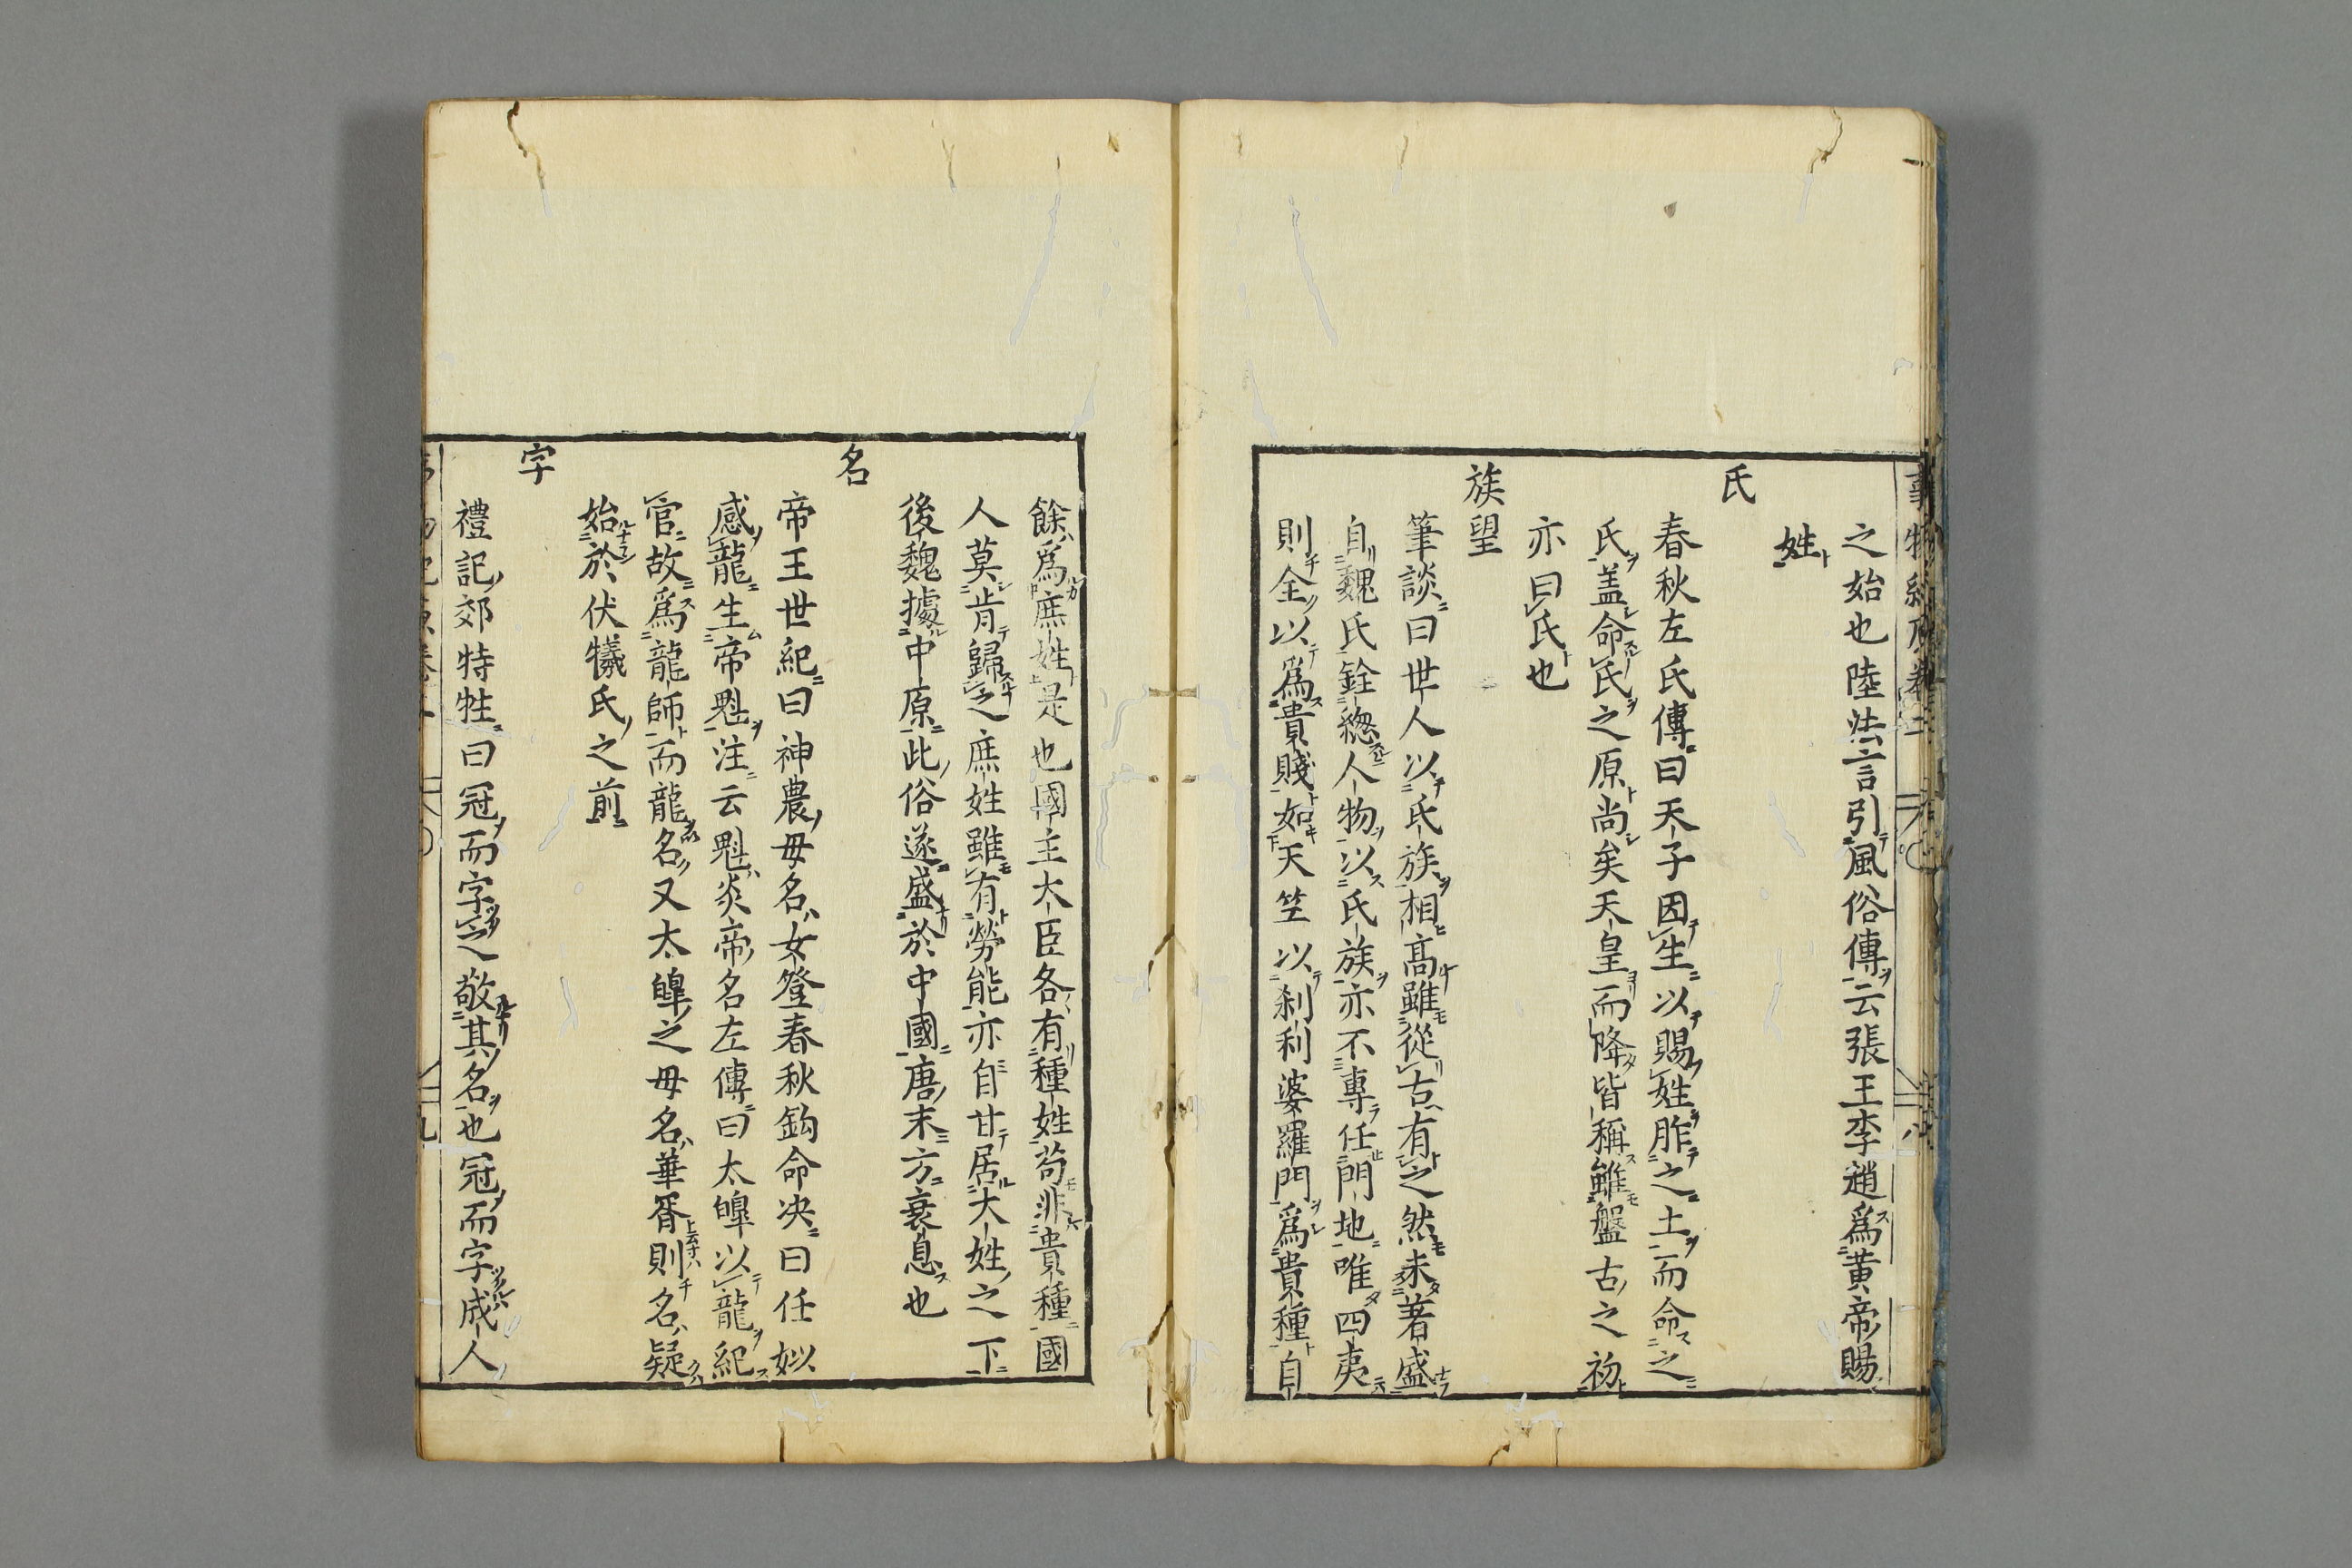 之始也陸法言引風俗傳云張王李趙爲黄帝賜
姓
氏
春秋左氏傳曰天子因生以賜姓胙之土而命之
氏盖命氏之原尚矣天皇而降皆稱雖盤古之初
亦曰氏也
族望
筆談曰世人以氏族相高雖從古有之然未著盛
自魏氏銓總人物以氏族亦不專任門地唯四夷
則全以爲貴賤如天竺以刹利婆羅門爲貴種自
餘爲庶姓是也國主大臣各有種姓苟非貴種國
人莫肯歸之庶姓雖有勞能亦自甘居大姓之下
後魏據中原此俗遂盛於中國唐末方衰息也
名
帝王世紀曰神農母名女登春秋鈎命决曰任姒
感龍生帝魁注云魁炎帝名左傳曰太皥以龍紀
官故爲龍師而龍名又太皥之母名華胥則名疑
始於伏犧氏之前
字
禮記郊特牲曰冠而字之敬其名也冠而字成人